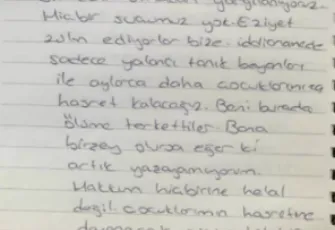 yargılanıyoruz.
Hiçbir suçumuz yok. Eziyet
zulm ediyorlar bize. iddianamede
sadece yalancı tanık beyanları
ile aylarca daha çocuklarımıza
hasret kalacağız. Beni burada
ölüme terkettiler. Bana
birşey olursa eğer ki
artık yazayamıyorum.
Hakkım hiçbirine helal
değil. Çocuklarımın hasretine